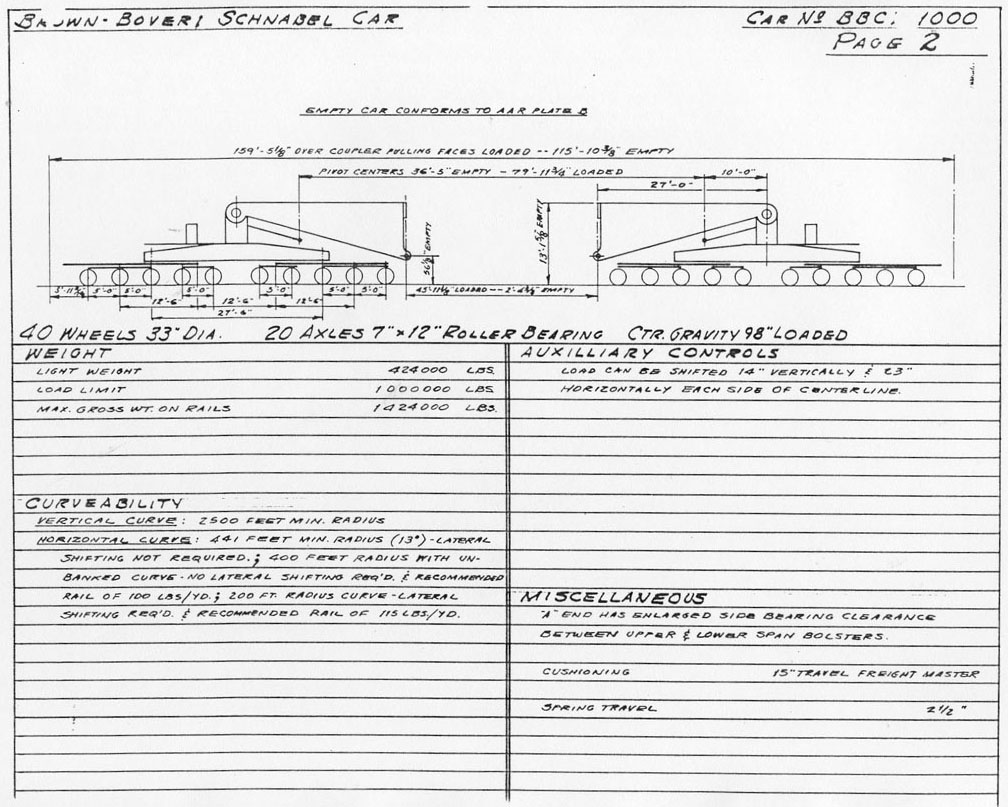 BROWN-BOVERI SCHNABEL CAR
CAR Nº BBC: 1000
PAGE 2
EMPTY CAR CONFORMS TO AAR PLATE B
159'-5⅛" OVER COUPLER PULLING FACES LOADED -- 115'-10⅜" EMPTY
PIVOT CENTERS 36'-5" EMPTY - 79'-11¾" LOADED
10'-0"
27'-0"
EMPTY
EMPTY
5'-0"
5'-0"
5'-0"
5'-0"
5'-0"
5'-0"
12'-6"
12'-6"
12'-6"
27'-6"
40 WHEELS 33" DIA. 20 AXLES 7" x 12" ROLLER BEARING CTR. GRAVITY 98" LOADED
WEIGHT
LIGHT WEIGHT 424000 LBS.
LOAD LIMIT 1000000 LBS
MAX. GROSS WT. ON RAILS 1424000 LBS.
CURVEABILITY
VERTICAL CURVE: 2500 FEET MIN. RADIUS
HORIZONTAL CURVE: 441 FEET MIN. RADIUS (13°)-LATERAL
SHIFTING NOT REQUIRED.; 400 FEET RADIUS WITH UN-
BANKED CURVE-NO LATERAL SHIFTING REQ'D. & RECOMMENDED
RAIL OF 100 LBS/YD.; 200 FT. RADIUS CURVE-LATERAL
SHIFTING REQ'D. & RECOMMENDED RAIL OF 115 LBS/YD.
AUXILLIARY CONTROLS
LOAD CAN BE SHIFTED 14" VERTICALLY & 23"
HORIZONTALLY EACH SIDE OF CENTERLINE.
MISCELLANEOUS
"A" END HAS ENLARGED SIDE BEARING CLEARANCE
BETWEEN UPPER & LOWER SPAN BOLSTERS.
CUSHIONING 15" TRAVEL FREIGHT MASTER
SPRING TRAVEL 2½"